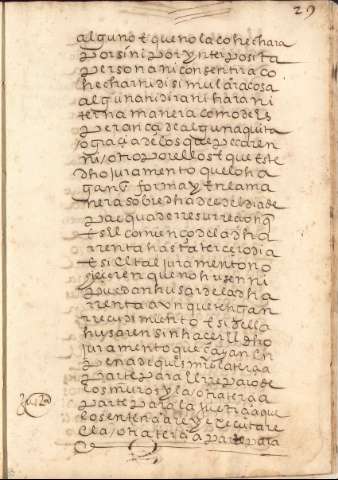 29
alguno e que no la cohechara
por si ni por ynterposita
persona ni consentira co
hechar ni disimulara cosa
alguna ni dira ni hara ni
terna manera como de es
perança de alguna quita
o graçia de los que pecharen
ni / otro por ellos e que este
dho juramento que lo ha
gan forma y en la ma
nera sobredha desdel dia de
pascua de rresurreçion
es el comienço de la dha
rrenta hasta terçero dia
e si el tal juramento no
hizieren que no husen ni
puedan husar de la dha
rrenta avn que tengan
rrecudimiento e si della
husaren sin hazer el dho
juramento que cayan en
pena de mrs la terçia
parte para el rreparo de
los muros y la / otra terçia
parte para la justiçia que
lo sentençiare y executare
e la / otra terçia parte para